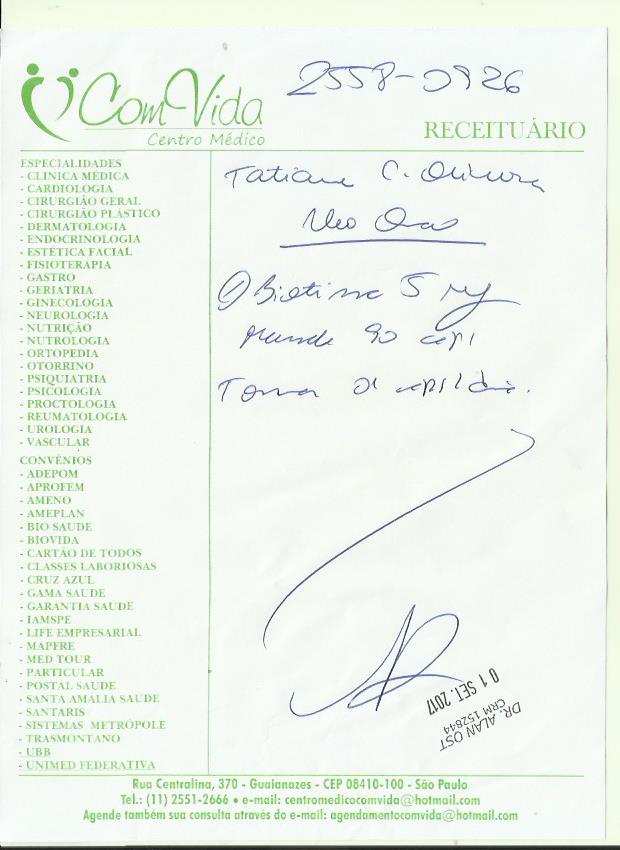 2558-0926
ComVida
Centro Médico
RECEITUÁRIO
ESPECIALIDADES
- CLINICA MÉDICA
- CARDIOLOGIA
- CIRURGIÃO GERAL
- CIRURGIÃO PLASTICO
- DERMATOLOGIA
- ENDOCRINOLOGIA
- ESTÉTICA FACIAL
- FISIOTERAPIA
- GASTRO
- GERIATRIA
- GINECOLOGIA
- NEUROLOGIA
- NUTRIÇÃO
- NUTROLOGIA
- ORTOPEDIA
- OTORRINO
- PSIQUIATRIA
- PSICOLOGIA
- PROCTOLOGIA
- REUMATOLOGIA
- UROLOGIA
- VASCULAR
CONVÊNIOS
- ADEPOM
- APROFEM
- AMENO
- AMEPLAN
- BIO SAUDE
- BIOVIDA
- CARTÃO DE TODOS
- CLASSES LABORIOSAS
- CRUZ AZUL
- GAMA SAUDE
- GARANTIA SAUDE
- IAMSPE
- LIFE EMPRESARIAL
- MAPFRE
- MED TOUR
- PARTICULAR
- POSTAL SAUDE
- SANTA AMALIA SAUDE
- SANTARIS
- SISTEMAS METRÓPOLE
- TRASMONTANO
- UBB
- UNIMED FEDERATIVA
Tatiane C. Oliveira
Uso Oral
① Biotina 5 mg
mande 90 caps
Tomar 01 caps/dia.
01 SET. 2017
DR. ALAN OST
CRM 152844
Rua Centralina, 370 - Guaianazes - CEP 08410-100 - São Paulo
Tel.: (11) 2551-2666 • e-mail: centromedicocomvida@hotmail.com
Agende também sua consulta através do e-mail: agendamentocomvida@hotmail.com